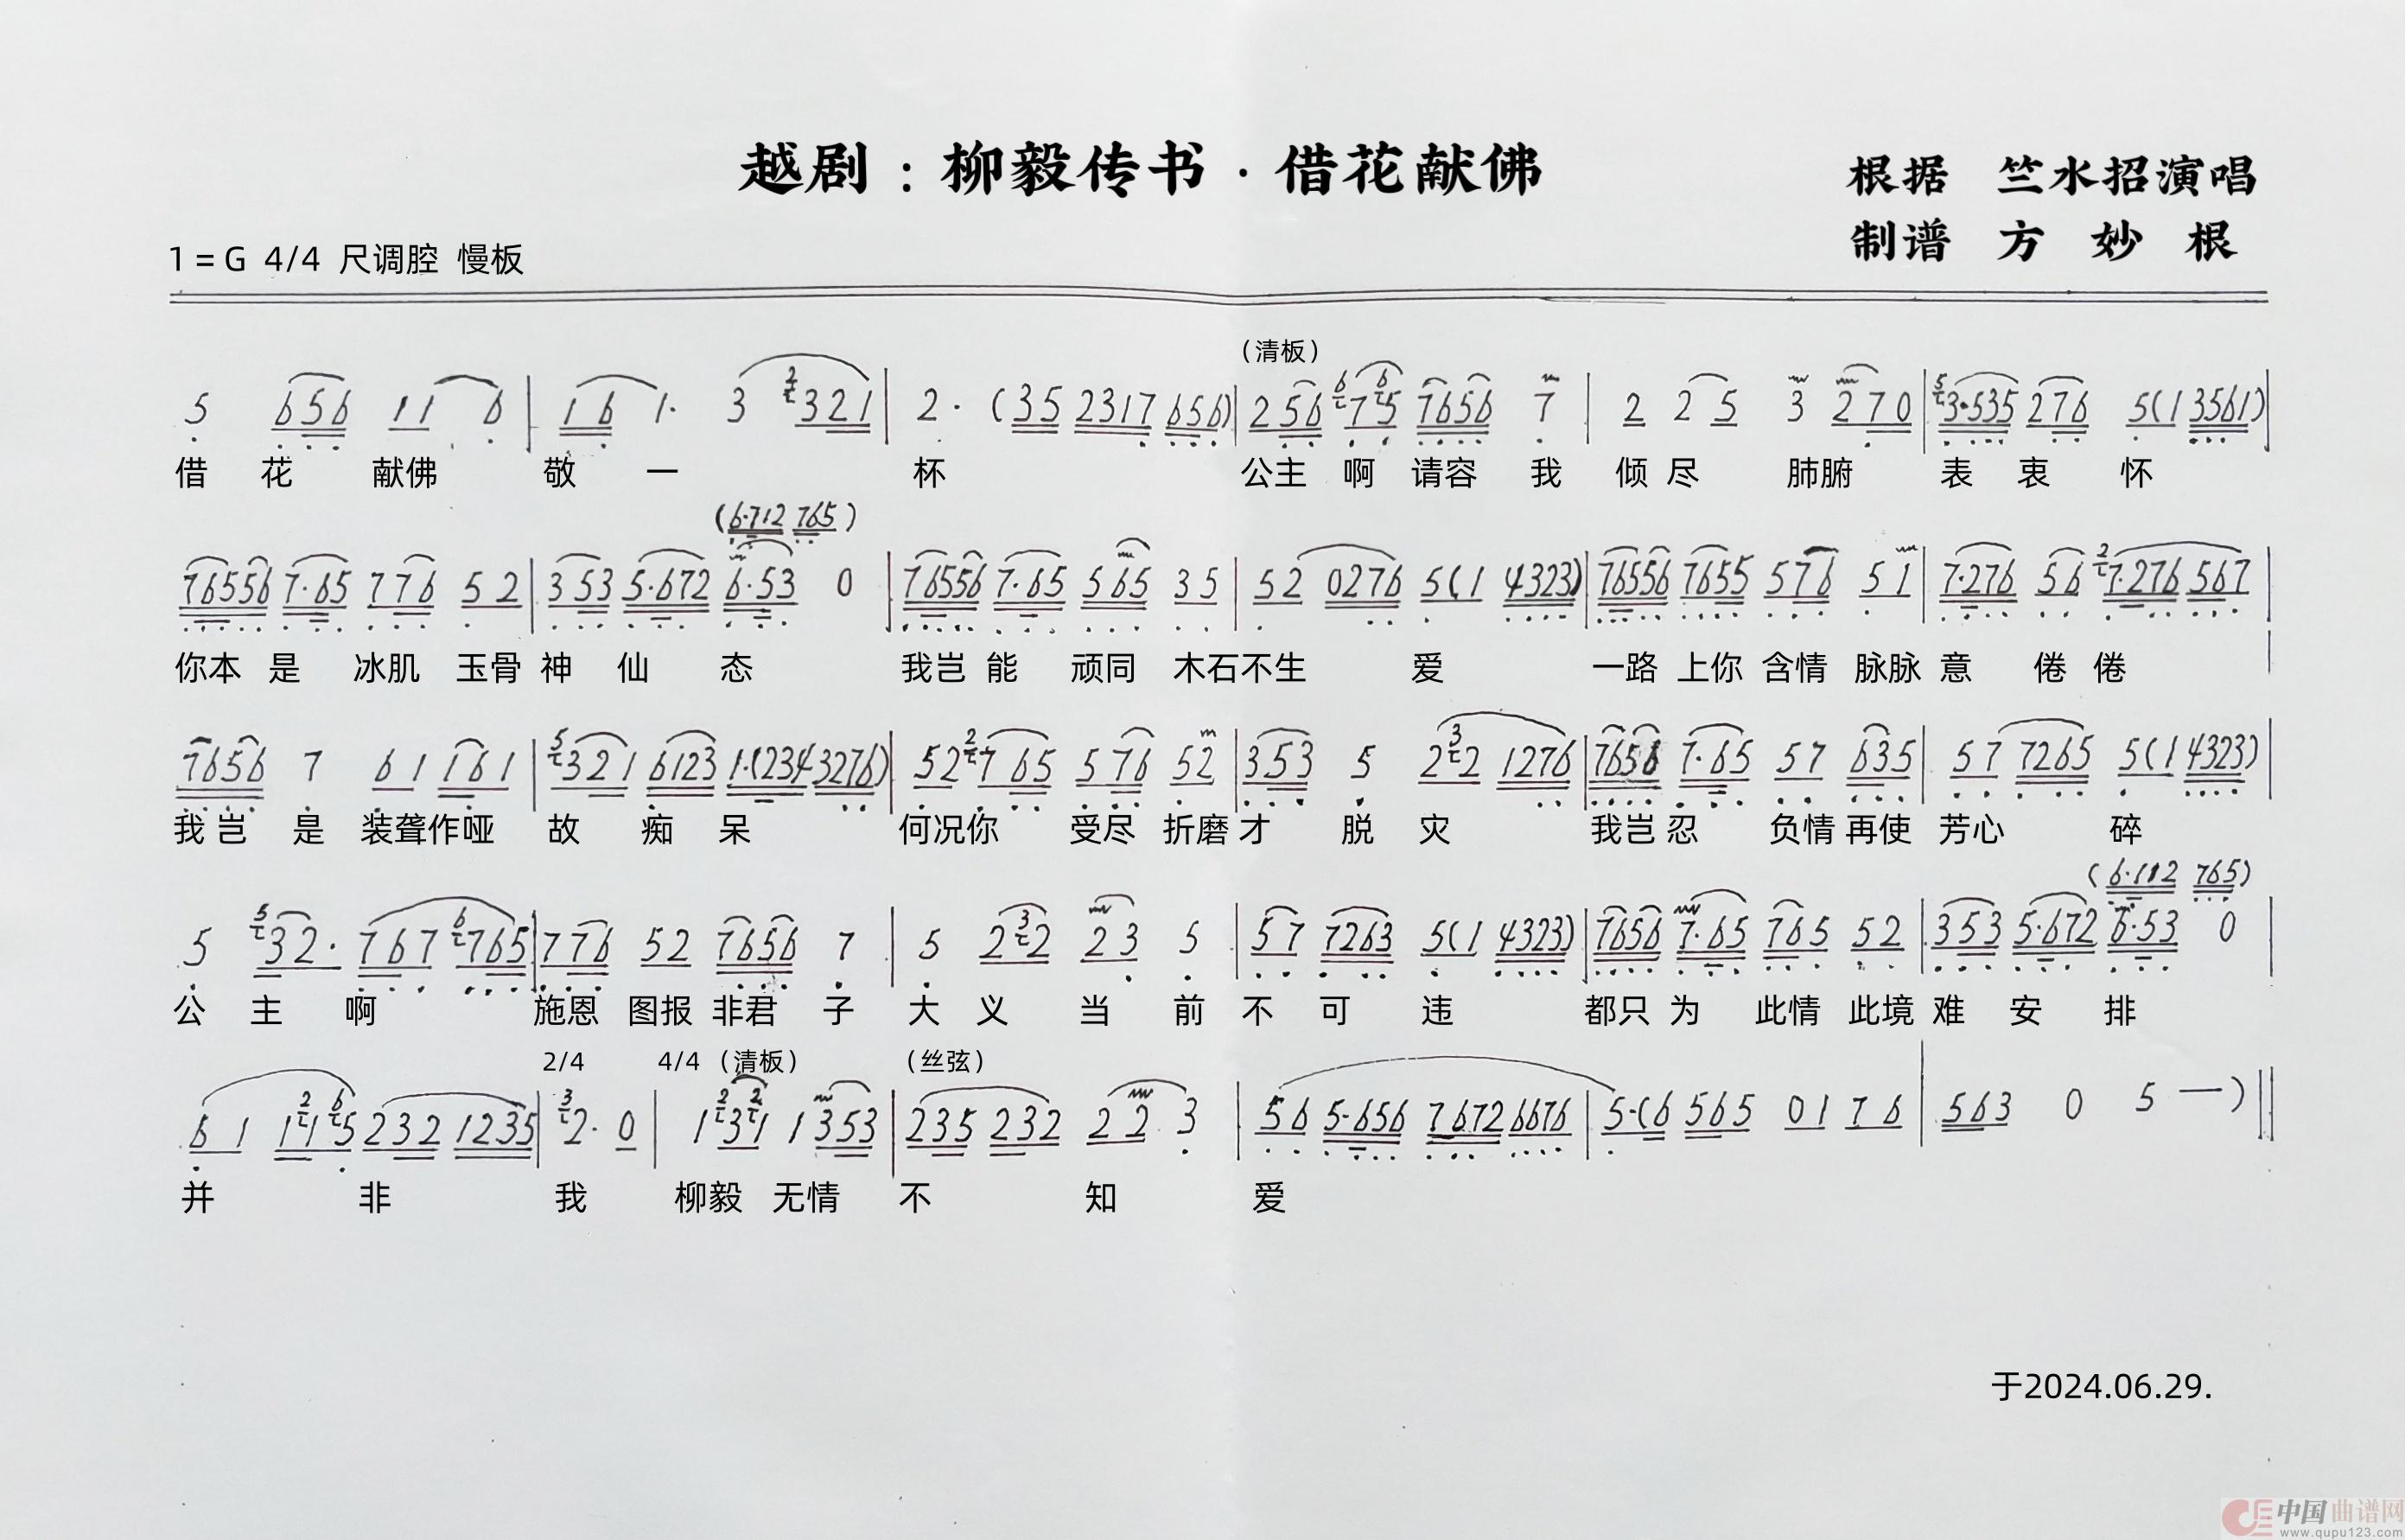 越剧：柳毅传书·借花献佛
根据 竺水招演唱
制谱 方 妙 根
1 = G 4/4 尺调腔 慢板
（清板）
5 656 11 6 | 16 1· 3 321 | 2· (35 2317 656) | 256 75 7656 7 | 2 2 5 3 270 | 3·535 276 5(1 3561) |
借 花 献佛 敬 一 杯 公主 啊 请容 我 倾 尽 肺腑 表 衷 怀
(6·712 765)
76556 7·65 776 52 | 353 5·672 6·53 0 | 76556 7·65 565 35 | 52 0276 5(1 4323) | 76556 7655 576 51 | 7·276 56 7·276 567 |
你本 是 冰肌 玉骨 神 仙 态 我岂 能 顽同 木石 不生 爱 一路 上你 含情 脉脉 意 倦 倦
7656 7 61 161 | 321 6123 1·(234 3276) | 52 765 576 52 | 353 5 22 1276 | 7656 7·65 57 635 | 57 7265 5(1 4323) |
我岂 是 装聋作哑 故 痴 呆 何况你 受尽 折磨 才 脱 灾 我岂 忍 负情 再使 芳心 碎
(6·112 765)
5 32· 767 765 | 776 52 7656 7 | 5 22 23 5 | 57 7263 5(1 4323) | 7656 7·65 765 52 | 353 5·672 6·53 0 |
公 主 啊 施恩 图报 非君 子 大 义 当 前 不 可 违 都只 为 此情 此境 难 安 排
2/4 4/4（清板） （丝弦）
61 115 232 1235 | 2· 0 | 131 1353 | 235 232 22 3 | 56 5·656 7672 6676 | 5·(6 565 01 76 | 563 0 5 —) ‖
并 非 我 柳毅 无情 不 知 爱
于2024.06.29.
中国曲谱网
www.qupu123.com